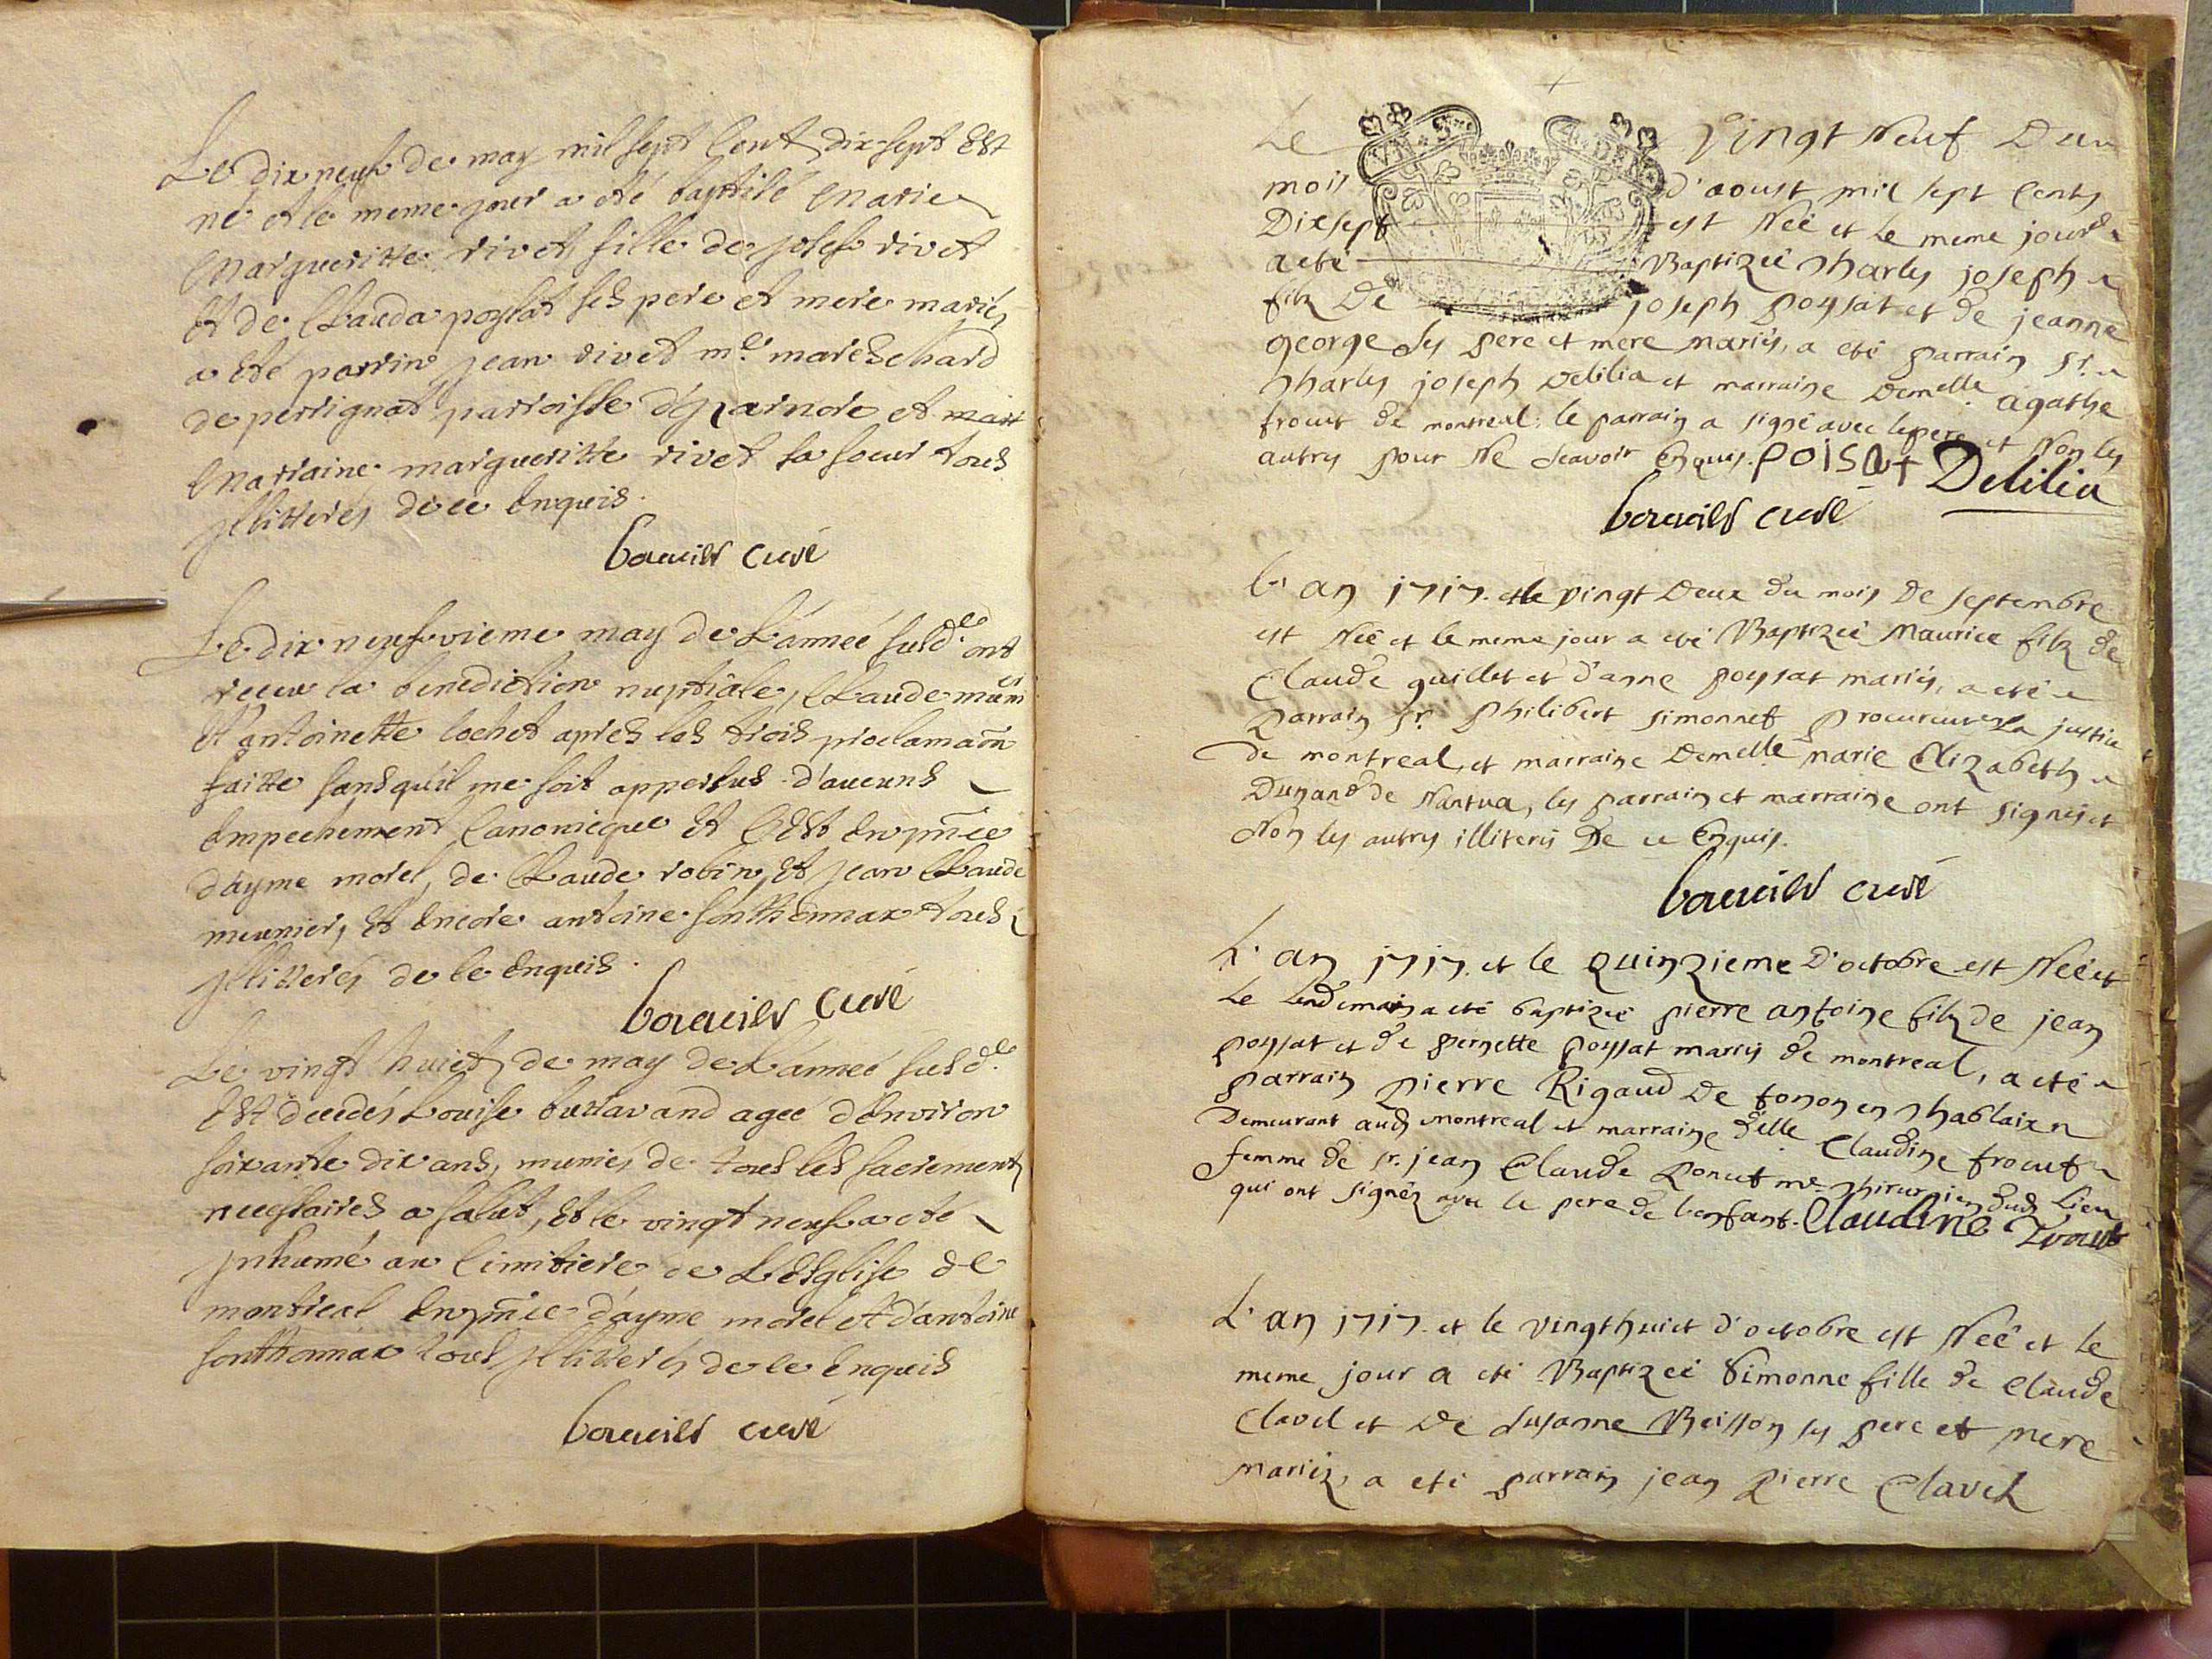 Le dix neuf de may mil sept Cent dix-sept Est
né et le meme jour a eté baptisé Marie
Margueritte rivet, fille de josef rivet
Et de Clauda poysat ses pere et mere mariés
a eté parrin jean rivet me mareschard
de perrignat parroisse d'
et mar
Marraine margueritte rivet sa soeur tous
jllitterés de ce Enquis.
curé
Le dix neufvieme may de L'année susde ont
receu la benediction nuptiale, Claude
Et antoinette lochet apres les trois proclamaõn
faitte sans qu'il me soit apperçus d'aucuns
Empechement Canonicque Et C'est En pnce
d'ayme morel, de Claude robin, Et jean Claude
meunier, Et Encore antoine sonthonnax tous
jllitterés de Ce Enquis.
curé
Le vingt huict de may de L'année susde
Est decedés Louise buttavand agee d'Environ
soixante dix ans, munies de tous les sacrements
necessaires a salut, Et le vingt neuf a eté
jnhumé au Cimitiere de L'Esglise de
montreal En pnce d'ayme morel et d'antoine
sonthonnax tous jllitterés de Ce Enquis
curé
Le vingt Neuf Du
mois d'aoust mil sept Cents
Dixsept est Neé et le meme jour
a eté Baptizeé Charles joseph
filz De joseph poysat et de jeanne
george ses pere et mere mariés, a eté parrain sr.
Charles joseph Delilia et marraine Demelle agathe
de montreal; le parrain a signé avec le pere et Non les
autres pour Ne Scavoir Enquis. POISAT Delilia
curé
L'an 1717. et le vingt Deux du mois De septembre
est Neé et le meme jour a eté Baptizeé Maurice filz de
Claude guillet et d'anne poysat mariés, a eté
Parrain sr. Philibert simonnet procureur en la justice
de montreal, et marraine Demelle marie Elizabeth
de Nantua, les parrain et marraine ont signés et
Non les autres illiterés De ce Enquis.
curé
L'an 1717. et le Quinzieme D'octobre est Neé et
Le Lendemain a eté baptizeé pierre antoine filz de jean
poysat et de pernette poysat mariés de montreal, a eté
parrain pierre Rigaud De tonon en Chablaix
Demeurant aud montreal et marraine d'elle Claudine
femme de sr. jean Claude me Chirurgien dud Lieu
qui ont signéz avec le pere de l'enfant. Claudine
L'an 1717. et le vingthuict d'octobre est Neé et le
meme jour a eté Baptizeé Simonne fille de Claude
Clavel et De Susanne Buisson ses pere et mere
Mariéz, a eté parrain jean Pierre Clavel